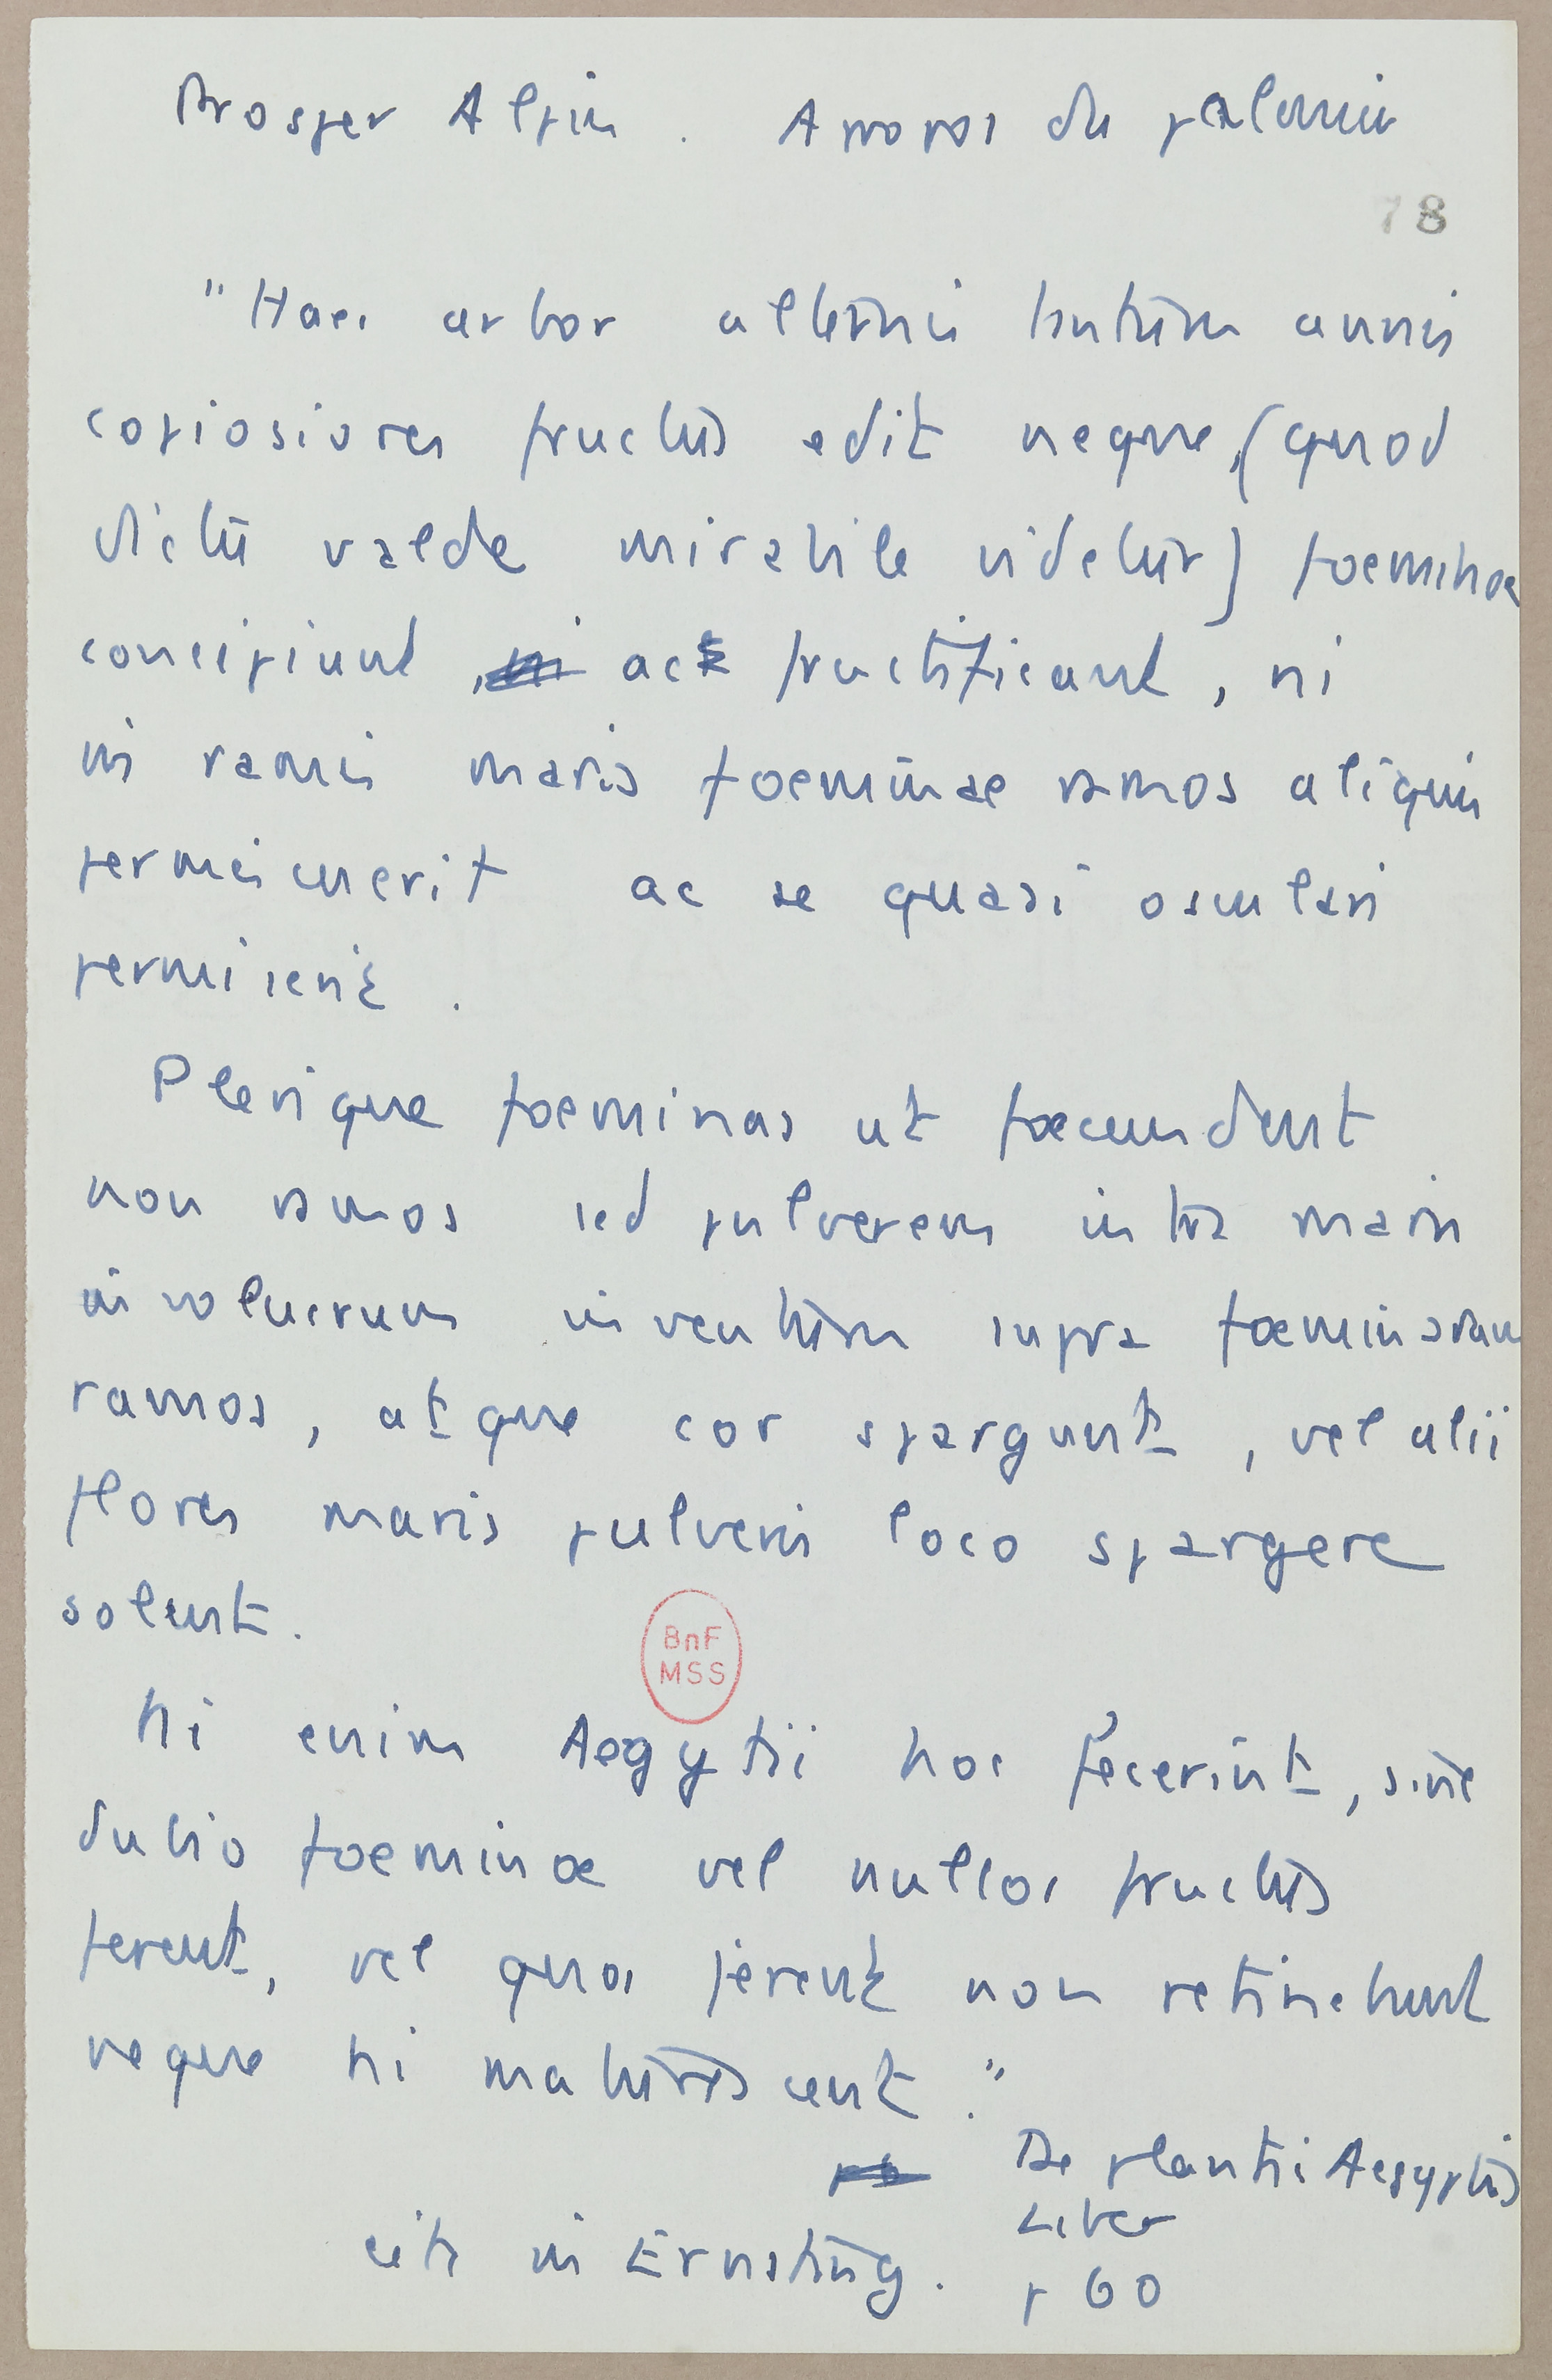 Prosper Alpin. A propos du palmier
78
"Haec arbor alternis tantum annis
copiosiores fructus edit neque, (quod
dictu valde mirabile videtur) foeminae
concipiunt, ac fructificant, ni
in ramis maris foeminae ramos aliquis
permiscuerit ac se quasi osculari
permiserit.
Plerique foeminas ut foecundent
non ramos sed pulverem intra maris
involucrum inventum supra foeminarum
ramos, atque cor spargunt, vel alii
flores maris pulveris loco spargere
solent.
Ni enim Aegyptii hoc fecerint, sine
dubio foeminae vel nullos fructus
ferent, vel quos ferent non retinebunt
neque hi maturescent."
De plantis Aegyptis
Liber
cité in Ernsting. p 60
BnF
MSS